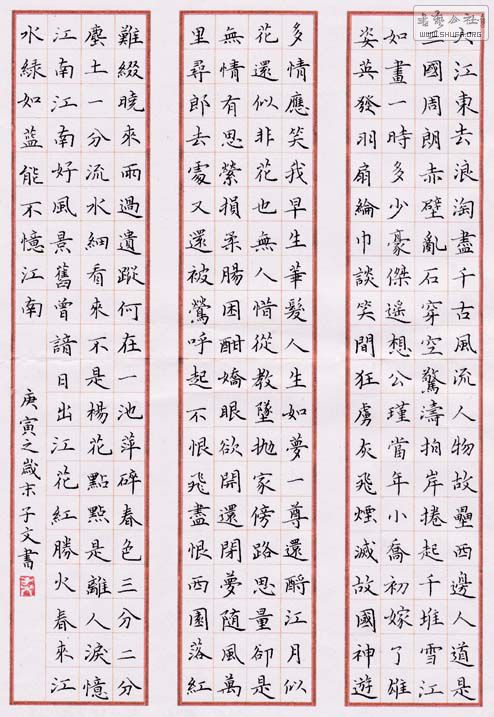 書藝公社
WWW.SHUFA.ORG
大江東去浪淘盡千古風流人物故壘西邊人道是
三國周朗赤壁亂石穿空驚濤拍岸捲起千堆雪江
如畫一時多少豪傑遙想公瑾當年小喬初嫁了雄
姿英發羽扇綸巾談笑間狂虜灰飛煙滅故國神遊
多情應笑我早生華髮人生如夢一尊還酹江月似
花還似非花也無人惜從教墜拋家傍路思量卻是
無情有思縈損柔腸困酣嬌眼欲開還閉夢隨風萬
里尋郎去處又還被鶯呼起不恨飛盡恨西園落紅
難綴曉來雨過遺蹤何在一池萍碎春色三分二分
塵土一分流水細看來不是楊花點點是離人淚憶
江南江南好風景舊曾諳日出江花紅勝火春來江
水綠如藍能不憶江南
庚寅之歲末子文書